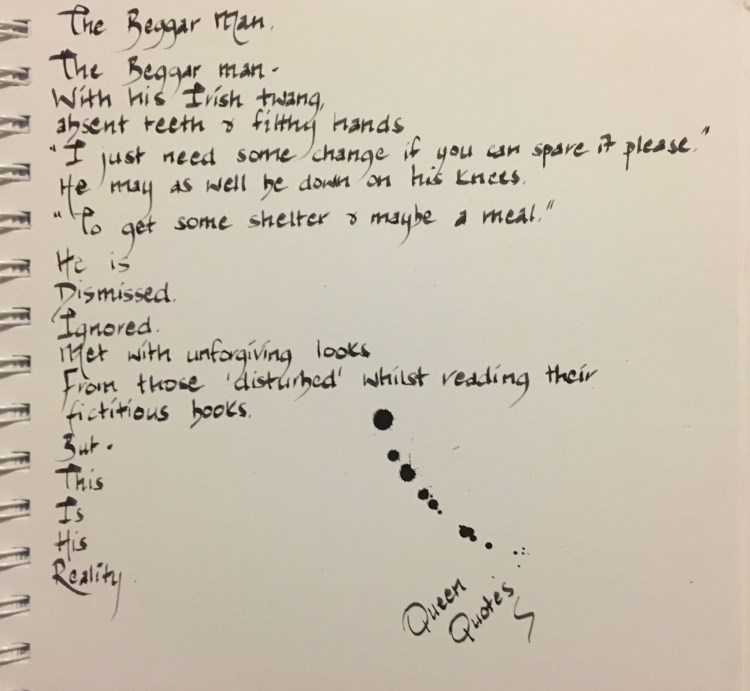 The Beggar Man.
The Beggar man -
With his Irish twang,
absent teeth & filthy hands
"I just need some change if you can spare it please."
He may as well be down on his knees.
"To get some shelter & maybe a meal."
He is
Dismissed.
Ignored.
Met with unforgiving looks
From those 'disturbed' whilst reading their
fictitious books.
But -
This
Is
His
Reality.
Queen
Quotes